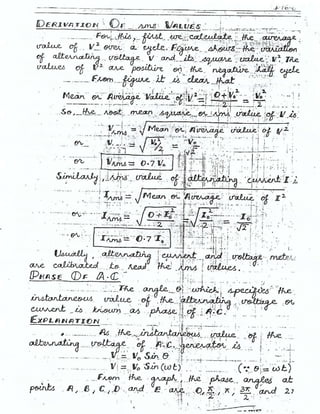 DERIVATION OF rms VALUES
For this, first we calculate the average
value of V² over a cycle. Figure shows the variation
of alternating voltage V and its square value V². The
values of V² are positive on the negative half cycle
From figure it is clear that
Mean or Average Value of V² = (0 + V₀²)/2 = V₀²/2
So, the root mean square or rms value of V is
Vrms = √Mean or Average value of V²
or V = √(V₀²/2) = V₀/√2
or Vrms = 0.7 V₀
Similarly, rms value of alternating current I is
Irms = √Mean or Average value of I²
or Irms = √((0 + I₀²)/2) = √(I₀²/2) = I₀/√2
or Irms = 0.7 I₀
Usually, alternating current and voltage meter
are calibrated to read the rms values.
PHASE OF A.C
The angle θ which specifies the
instantaneous value of the alternating voltage or
current is known as phase of A.C.
EXPLANATION
As the instantaneous value of the
alternating voltage of A.C. generator is
V = V₀ Sin θ
V = V₀ Sin (ωt) (∵ θ = ωt)
From the graph, the phase angles at
points A, B, C, D and E are 0, π/2, π, 3π/2 and 2